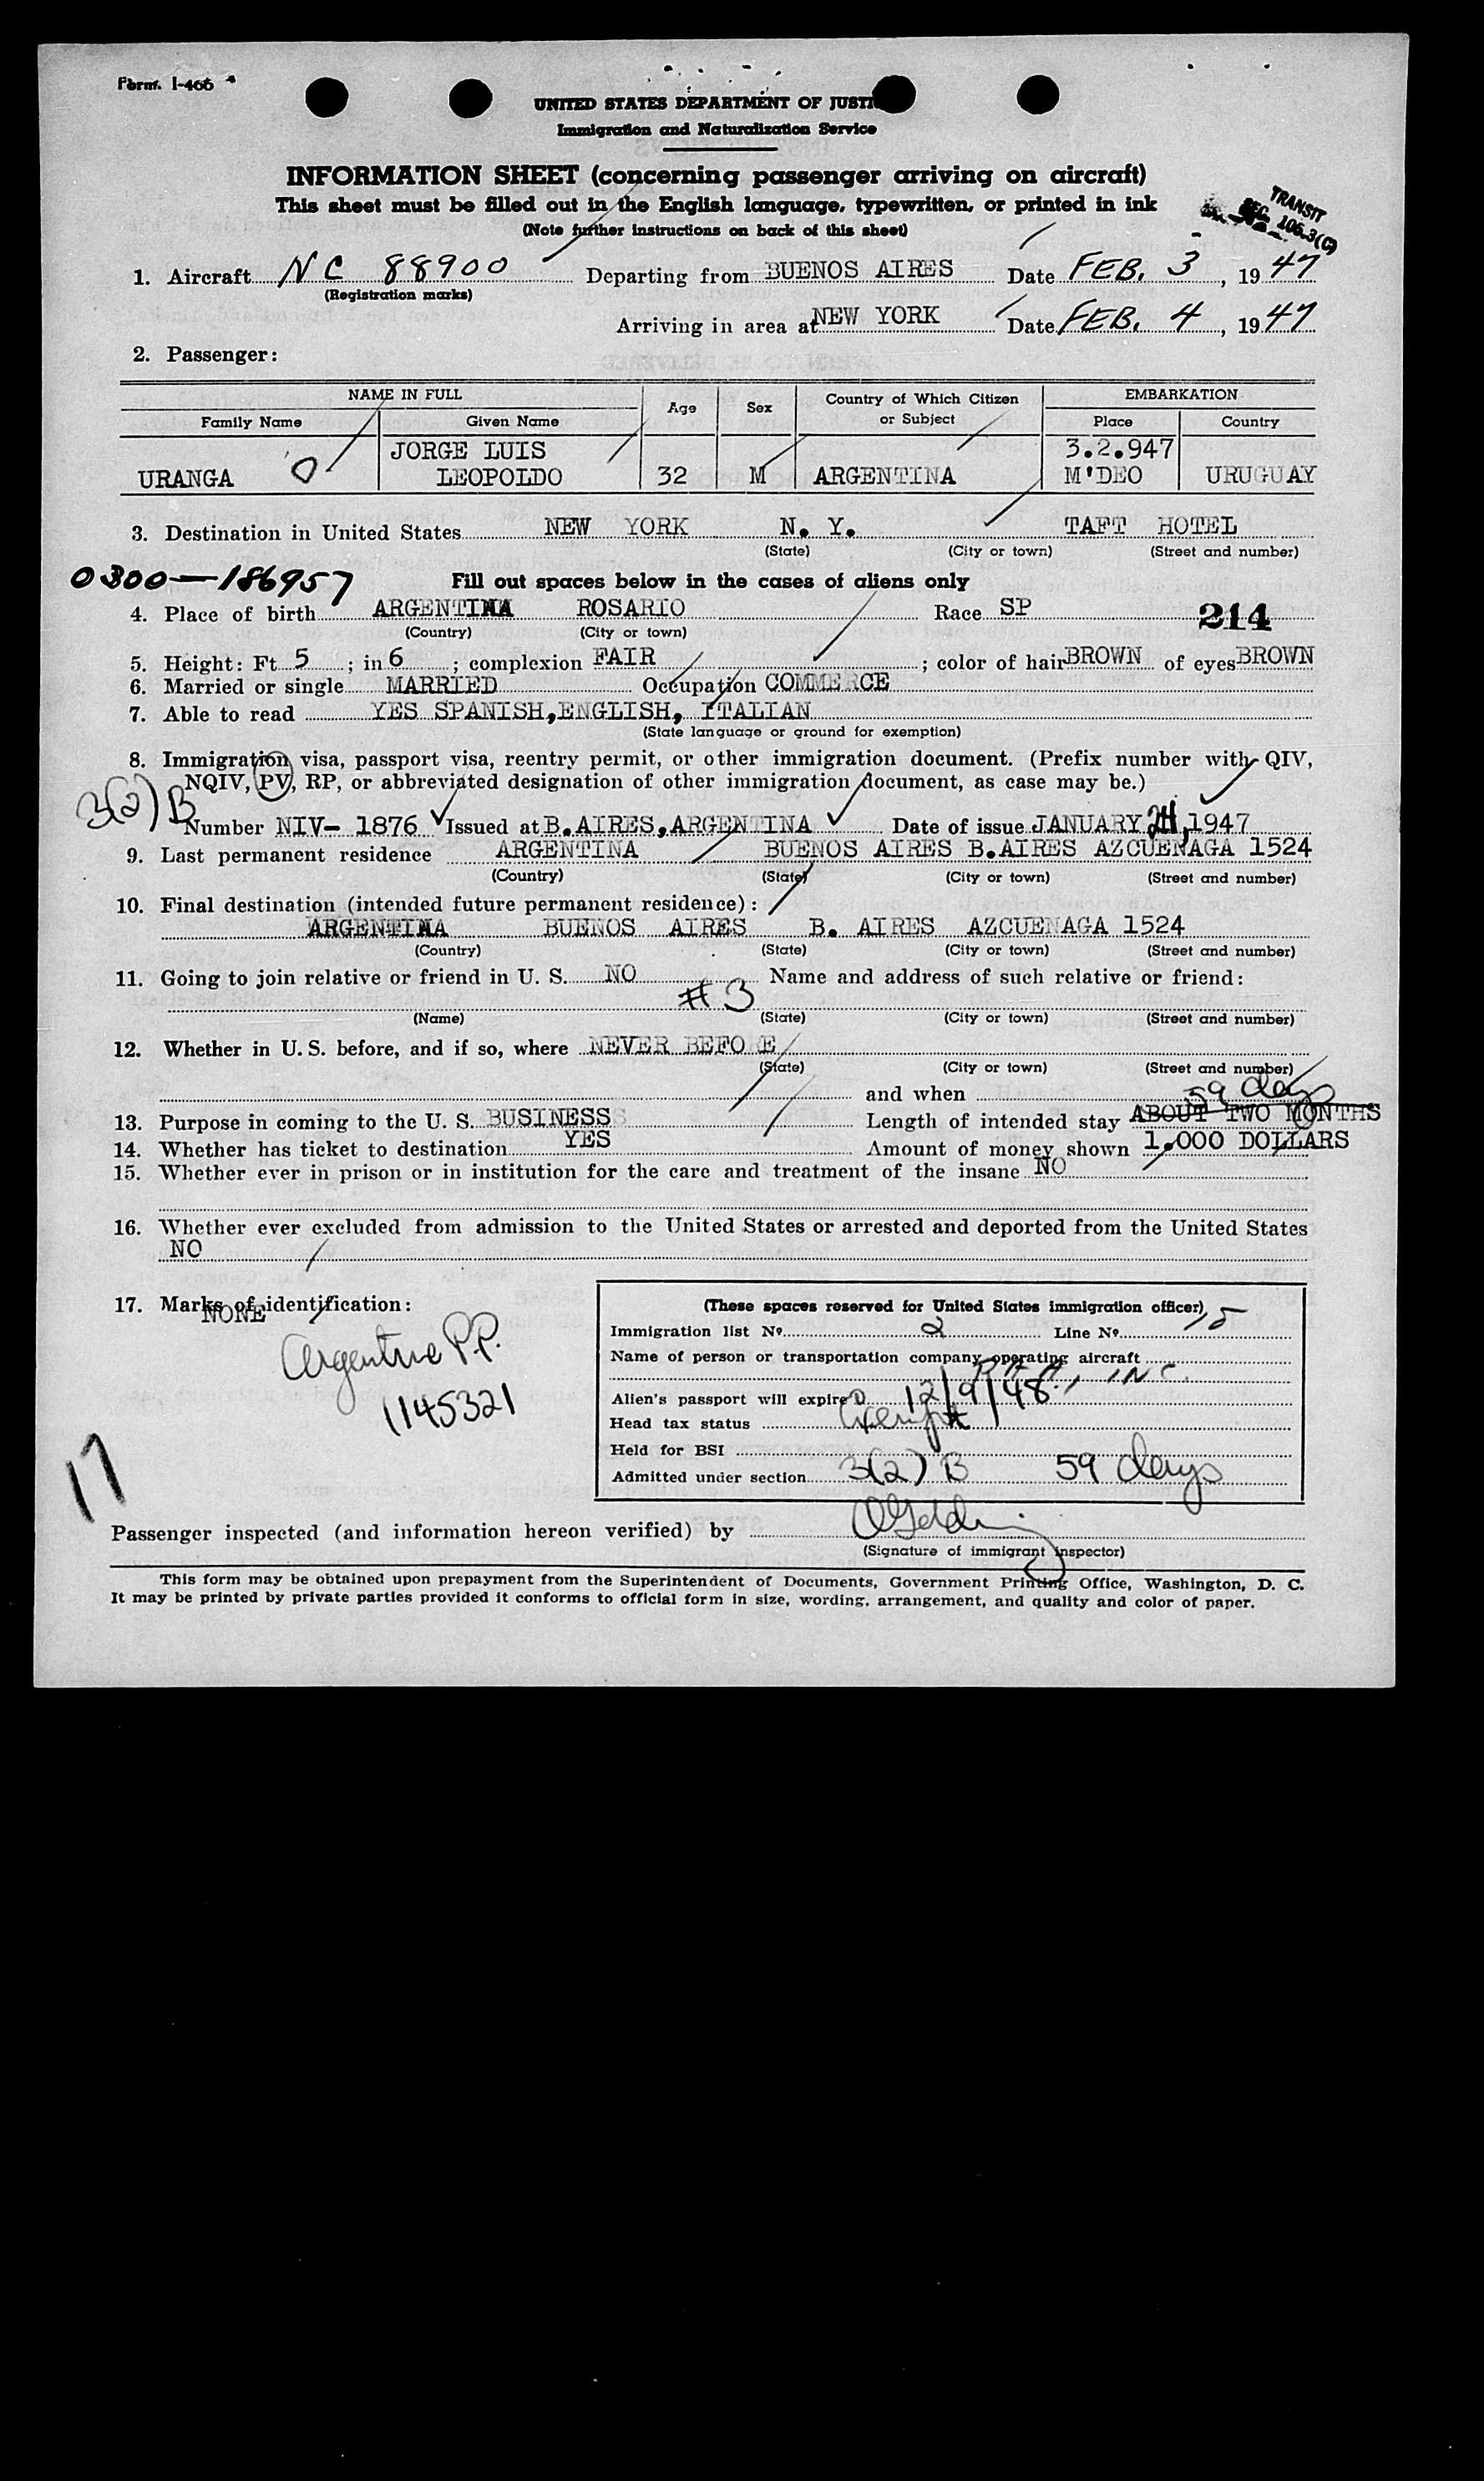 Form I-466
UNITED STATES DEPARTMENT OF JUSTI
Immigration and Naturalization Service
INFORMATION SHEET (concerning passenger arriving on aircraft)
This sheet must be filled out in the English language, typewritten, or printed in ink
(Note further instructions on back of this sheet)
TRANSIT
SEC. 106.3(C)
1. Aircraft NC 88900 Departing from BUENOS AIRES Date FEB. 3, 1947
(Registration marks)
Arriving in area at NEW YORK Date FEB. 4, 1947
2. Passenger:
NAME IN FULL Age Sex Country of Which Citizen or Subject EMBARKATION
Family Name Given Name Place Country
JORGE LUIS 3.2.947
URANGA O LEOPOLDO 32 M ARGENTINA M'DEO URUGUAY
3. Destination in United States NEW YORK N. Y. TAFT HOTEL
(State) (City or town) (Street and number)
0300-186957 Fill out spaces below in the cases of aliens only
4. Place of birth ARGENTINA ROSARIO Race SP 214
(Country) (City or town)
5. Height: Ft 5; in 6; complexion FAIR; color of hair BROWN of eyes BROWN
6. Married or single MARRIED Occupation COMMERCE
7. Able to read YES SPANISH, ENGLISH, ITALIAN
(State language or ground for exemption)
8. Immigration visa, passport visa, reentry permit, or other immigration document. (Prefix number with QIV,
NQIV, PV, RP, or abbreviated designation of other immigration document, as case may be.)
3(2) B
Number NIV- 1876 Issued at B.AIRES, ARGENTINA Date of issue JANUARY 24, 1947
9. Last permanent residence ARGENTINA BUENOS AIRES B.AIRES AZCUENAGA 1524
(Country) (State) (City or town) (Street and number)
10. Final destination (intended future permanent residence):
ARGENTINA BUENOS AIRES B. AIRES AZCUENAGA 1524
(Country) (State) (City or town) (Street and number)
11. Going to join relative or friend in U. S. NO Name and address of such relative or friend:
#3
(Name) (State) (City or town) (Street and number)
12. Whether in U. S. before, and if so, where NEVER BEFO E
(State) (City or town) (Street and number)
and when
59 days
13. Purpose in coming to the U. S. BUSINESS Length of intended stay ABOUT TWO MONTHS
14. Whether has ticket to destination YES Amount of money shown 1.000 DOLLARS
15. Whether ever in prison or in institution for the care and treatment of the insane NO
16. Whether ever excluded from admission to the United States or arrested and deported from the United States
NO
17. Marks of identification:
NONE
Argentine P.P.
1145321
17
(These spaces reserved for United States immigration officer)
Immigration list No. 2 Line No. 15
Name of person or transportation company operating aircraft
P.A.A., INC.
Alien's passport will expire 12/9/48
Head tax status Exempt
Held for BSI
Admitted under section 3(2) B 59 days
Passenger inspected (and information hereon verified) by
(Signature of immigrant inspector)
This form may be obtained upon prepayment from the Superintendent of Documents, Government Printing Office, Washington, D. C.
It may be printed by private parties provided it conforms to official form in size, wording, arrangement, and quality and color of paper.